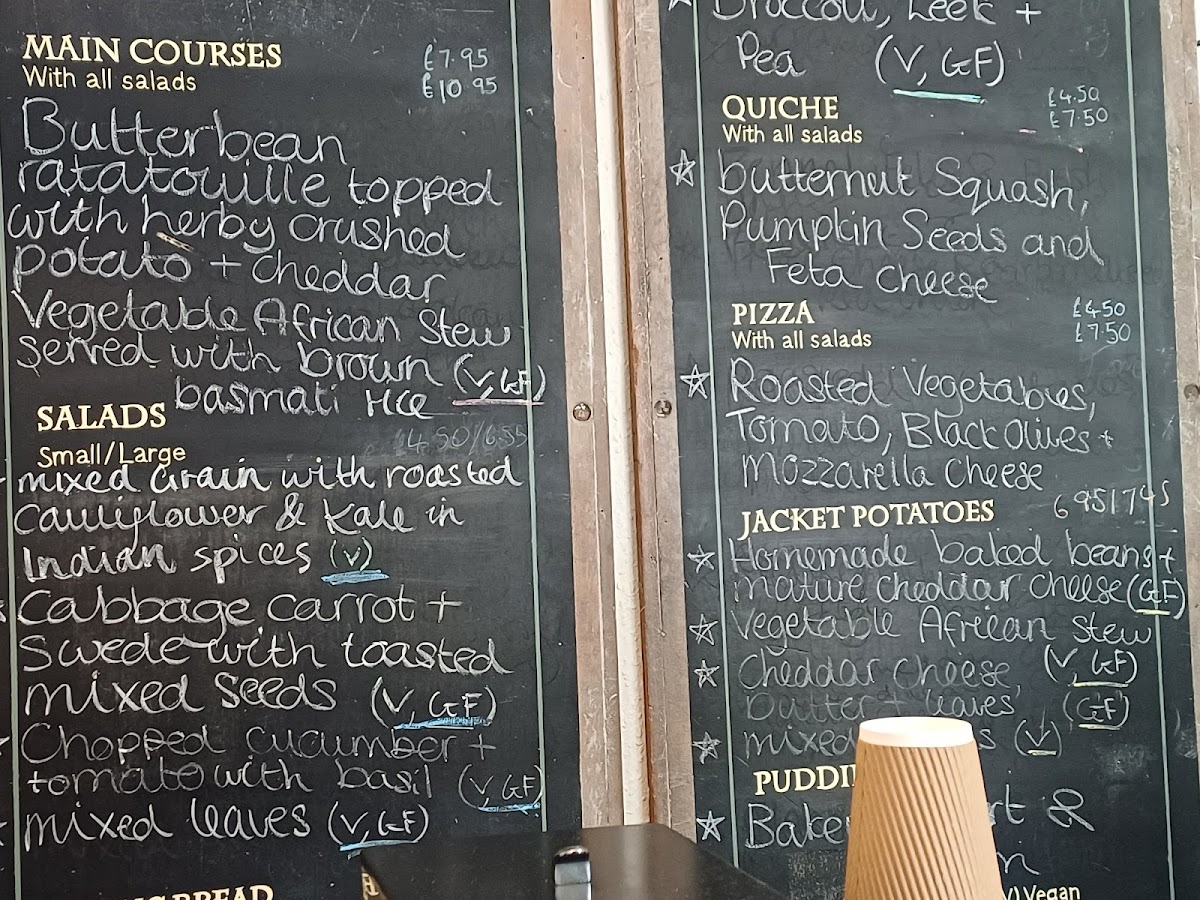 MAIN COURSES £7.95
With all salads £10.95
Butterbean
ratatouille topped
with herby crushed
potato + cheddar
Vegetable African Stew
served with brown (V, GF)
basmati rice
SALADS
Small/Large
mixed Grain with roasted
Cauliflower & Kale in
Indian spices (V)
Cabbage carrot +
Swede with toasted
mixed seeds (V, GF)
Chopped cucumber +
tomato with basil (V, GF)
mixed leaves (V, GF)
BREAD
Broccoli, Leek +
Pea (V, GF)
QUICHE £4.50
With all salads £7.50
butternut Squash,
Pumpkin Seeds and
Feta cheese
PIZZA £4.50
With all salads £7.50
Roasted Vegetables,
Tomato, Black Olives +
Mozzarella Cheese
JACKET POTATOES
Homemade baked beans +
mature cheddar cheese (GF)
Vegetable African Stew
(V, GF)
Cheddar cheese,
butter + leaves (GF)
mixed (V)
Vegan